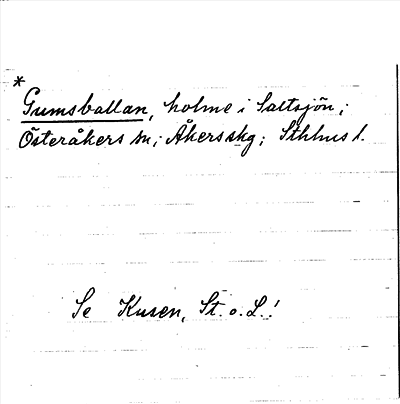 *
Gumsballan, holme i Saltsjön;
Österåkers sn; Åkers skg; Sthlms l.
Se Kusen, St. o. L.!